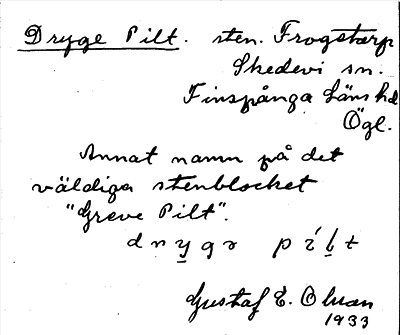 Dryge Pilt. sten. Frogstorp
Skedevi sn.
Finspånga läns hd
Ögl.
Annat namn på det
väldiga stenblocket
"Greve Pilt".
Gustaf E. Olsson
1933